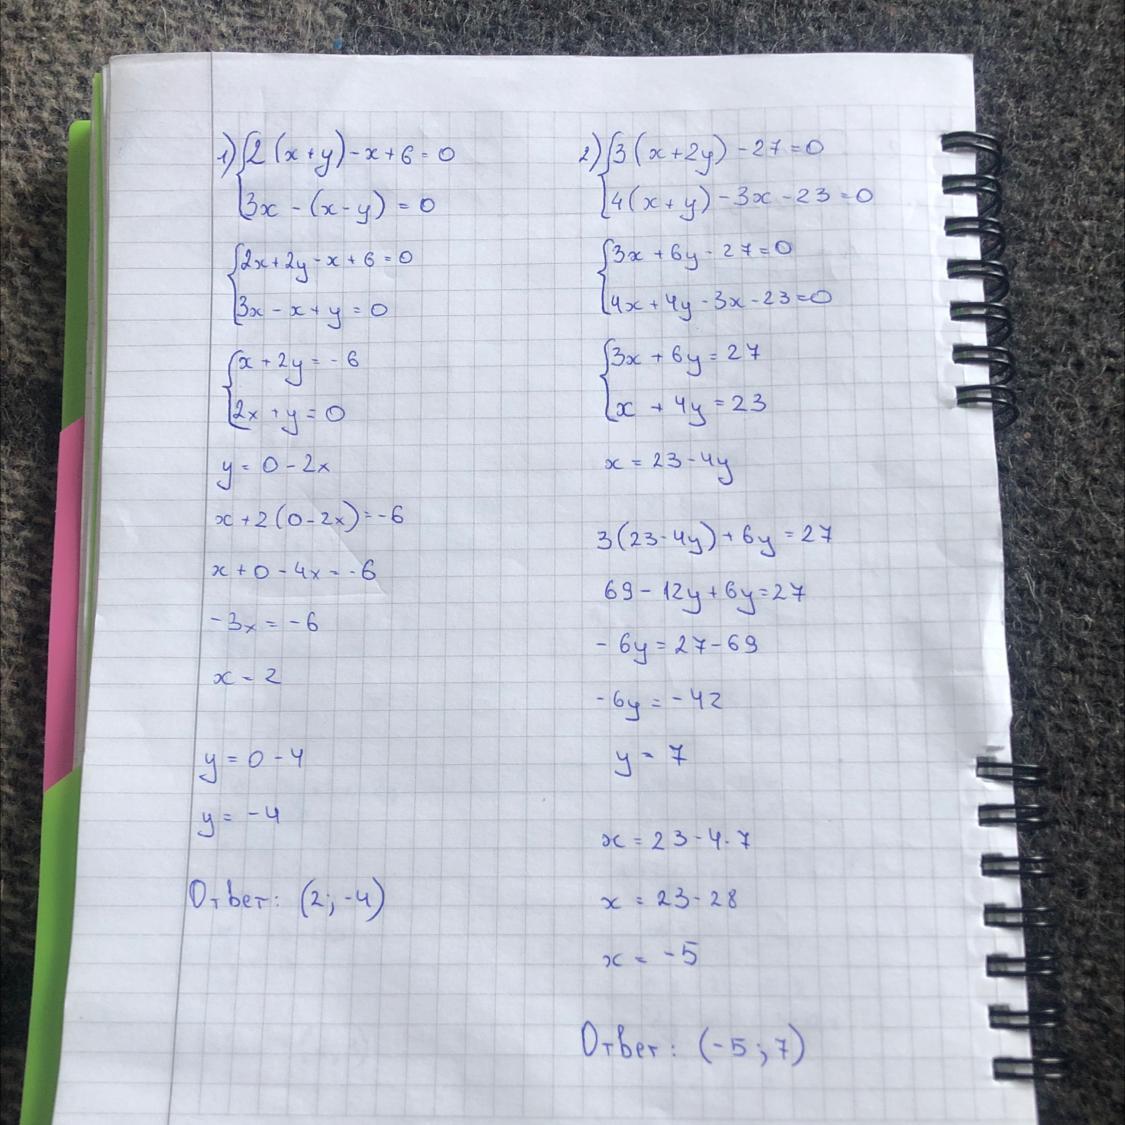 1) { 2 (x+y) - x + 6 = 0
3x - (x-y) = 0
{ 2x + 2y - x + 6 = 0
3x - x + y = 0
{ x + 2y = -6
2x + y = 0
y = 0 - 2x
x + 2 (0 - 2x) = -6
x + 0 - 4x = -6
-3x = -6
x = 2
y = 0 - 4
y = -4
Ответ: (2; -4)
2) { 3 (x+2y) - 27 = 0
4 (x+y) - 3x - 23 = 0
{ 3x + 6y - 27 = 0
4x + 4y - 3x - 23 = 0
{ 3x + 6y = 27
x + 4y = 23
x = 23 - 4y
3 (23 - 4y) + 6y = 27
69 - 12y + 6y = 27
- 6y = 27 - 69
-6y = -42
y = 7
x = 23 - 4 · 7
x = 23 - 28
x = -5
Ответ: (-5; 7)